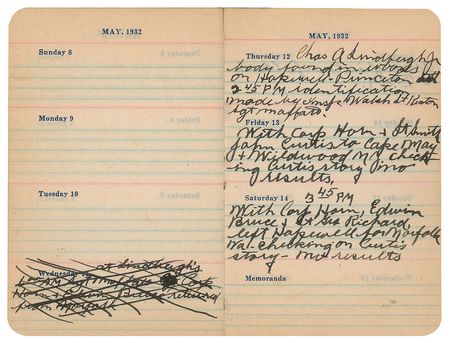 MAY, 1932
Sunday 8
Monday 9
Tuesday 10
Wednesday at Lindbergh's
Sgt Moffatt Corp
Horn
from Norfolk
MAY, 1932
Thursday 12 Chas A Lindbergh Jr
body found in woods
on Hopewell-Princeton
3 45 PM identification
made by Insp. Walsh Lt Keaton
Sgt Moffatt.
Friday 13
With Corp Horn + Lt Smith
John Curtis to Cape May
+ Wildwood NJ check-
ing Curtis story no
results,
Saturday 14 3 45 PM
With Corp Horn, Edwin
Bruce + Lt Richard
left Hopewell for Norfolk
Va. checking on Curtis
story - No results
Memoranda